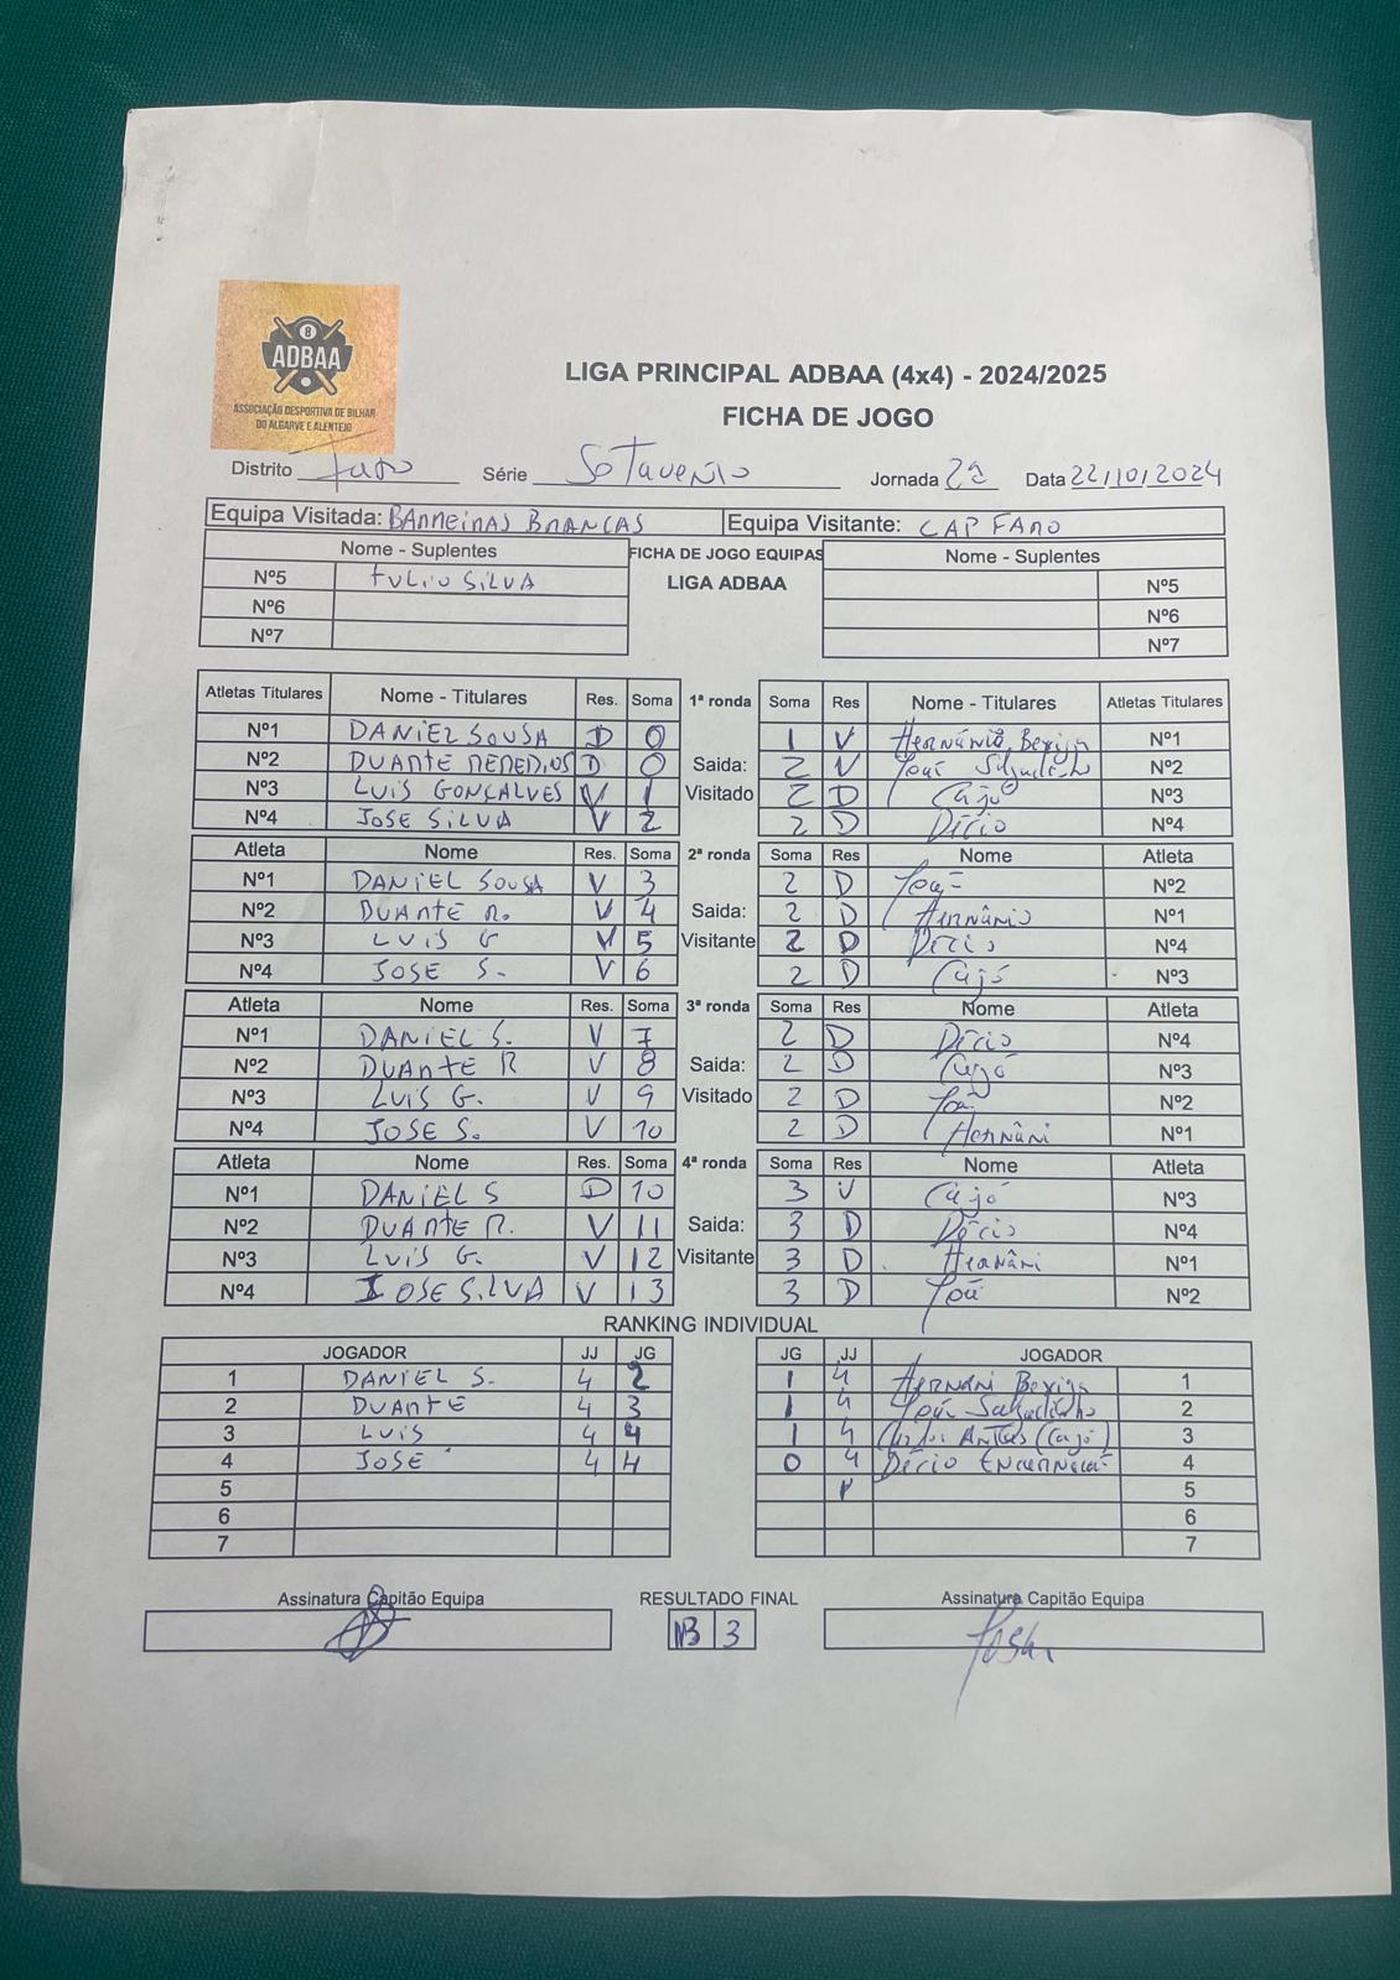 8
ADBAA
ASSOCIAÇÃO DESPORTIVA DE BILHAR
DO ALGARVE E ALENTEJO
LIGA PRINCIPAL ADBAA (4x4) - 2024/2025
FICHA DE JOGO
Distrito Faro Série Sotavento Jornada 2ª Data 22/10/2024
Equipa Visitada: BARREIRAS BRANCAS Equipa Visitante: CAP FARO
Nome - Suplentes FICHA DE JOGO EQUIPAS Nome - Suplentes
Nº5 TULIO SILVA LIGA ADBAA Nº5
Nº6 Nº6
Nº7 Nº7
Atletas Titulares Nome - Titulares Res. Soma 1ª ronda Soma Res Nome - Titulares Atletas Titulares
Nº1 DANIEL SOUSA D 0 1 V Hernânio Bexiga Nº1
Nº2 DUARTE REMEDIOS D 0 Saida: 2 V José Salgadinho Nº2
Nº3 LUIS GONÇALVES V 1 Visitado 2 D Cajó Nº3
Nº4 JOSE SILVA V 2 2 D Décio Nº4
Atleta Nome Res. Soma 2ª ronda Soma Res Nome Atleta
Nº1 DANIEL SOUSA V 3 2 D Nº2
Nº2 DUARTE R. V 4 Saida: 2 D Hernânio Nº1
Nº3 LUIS G V 5 Visitante 2 D Décio Nº4
Nº4 JOSE S. V 6 2 D Cajó Nº3
Atleta Nome Res. Soma 3ª ronda Soma Res Nome Atleta
Nº1 DANIEL S. V 7 2 D Décio Nº4
Nº2 DUARTE R V 8 Saida: 2 D Cajó Nº3
Nº3 LUIS G. V 9 Visitado 2 D Nº2
Nº4 JOSE S. V 10 2 D Hernâni Nº1
Atleta Nome Res. Soma 4ª ronda Soma Res Nome Atleta
Nº1 DANIEL S D 10 3 V Cajó Nº3
Nº2 DUARTE R. V 11 Saida: 3 D Décio Nº4
Nº3 LUIS G. V 12 Visitante 3 D Hernâni Nº1
Nº4 JOSE SILVA V 13 3 D Nº2
RANKING INDIVIDUAL
JOGADOR JJ JG JG JJ JOGADOR
1 DANIEL S. 4 2 1 4 Hernâni Bexiga 1
2 DUARTE 4 3 1 4 José Salgadinho 2
3 LUIS 4 4 1 4 (Cajó) 3
4 JOSE 4 4 0 4 Décio Encarnação 4
5 5
6 6
7 7
Assinatura Capitão Equipa RESULTADO FINAL Assinatura Capitão Equipa
13 3